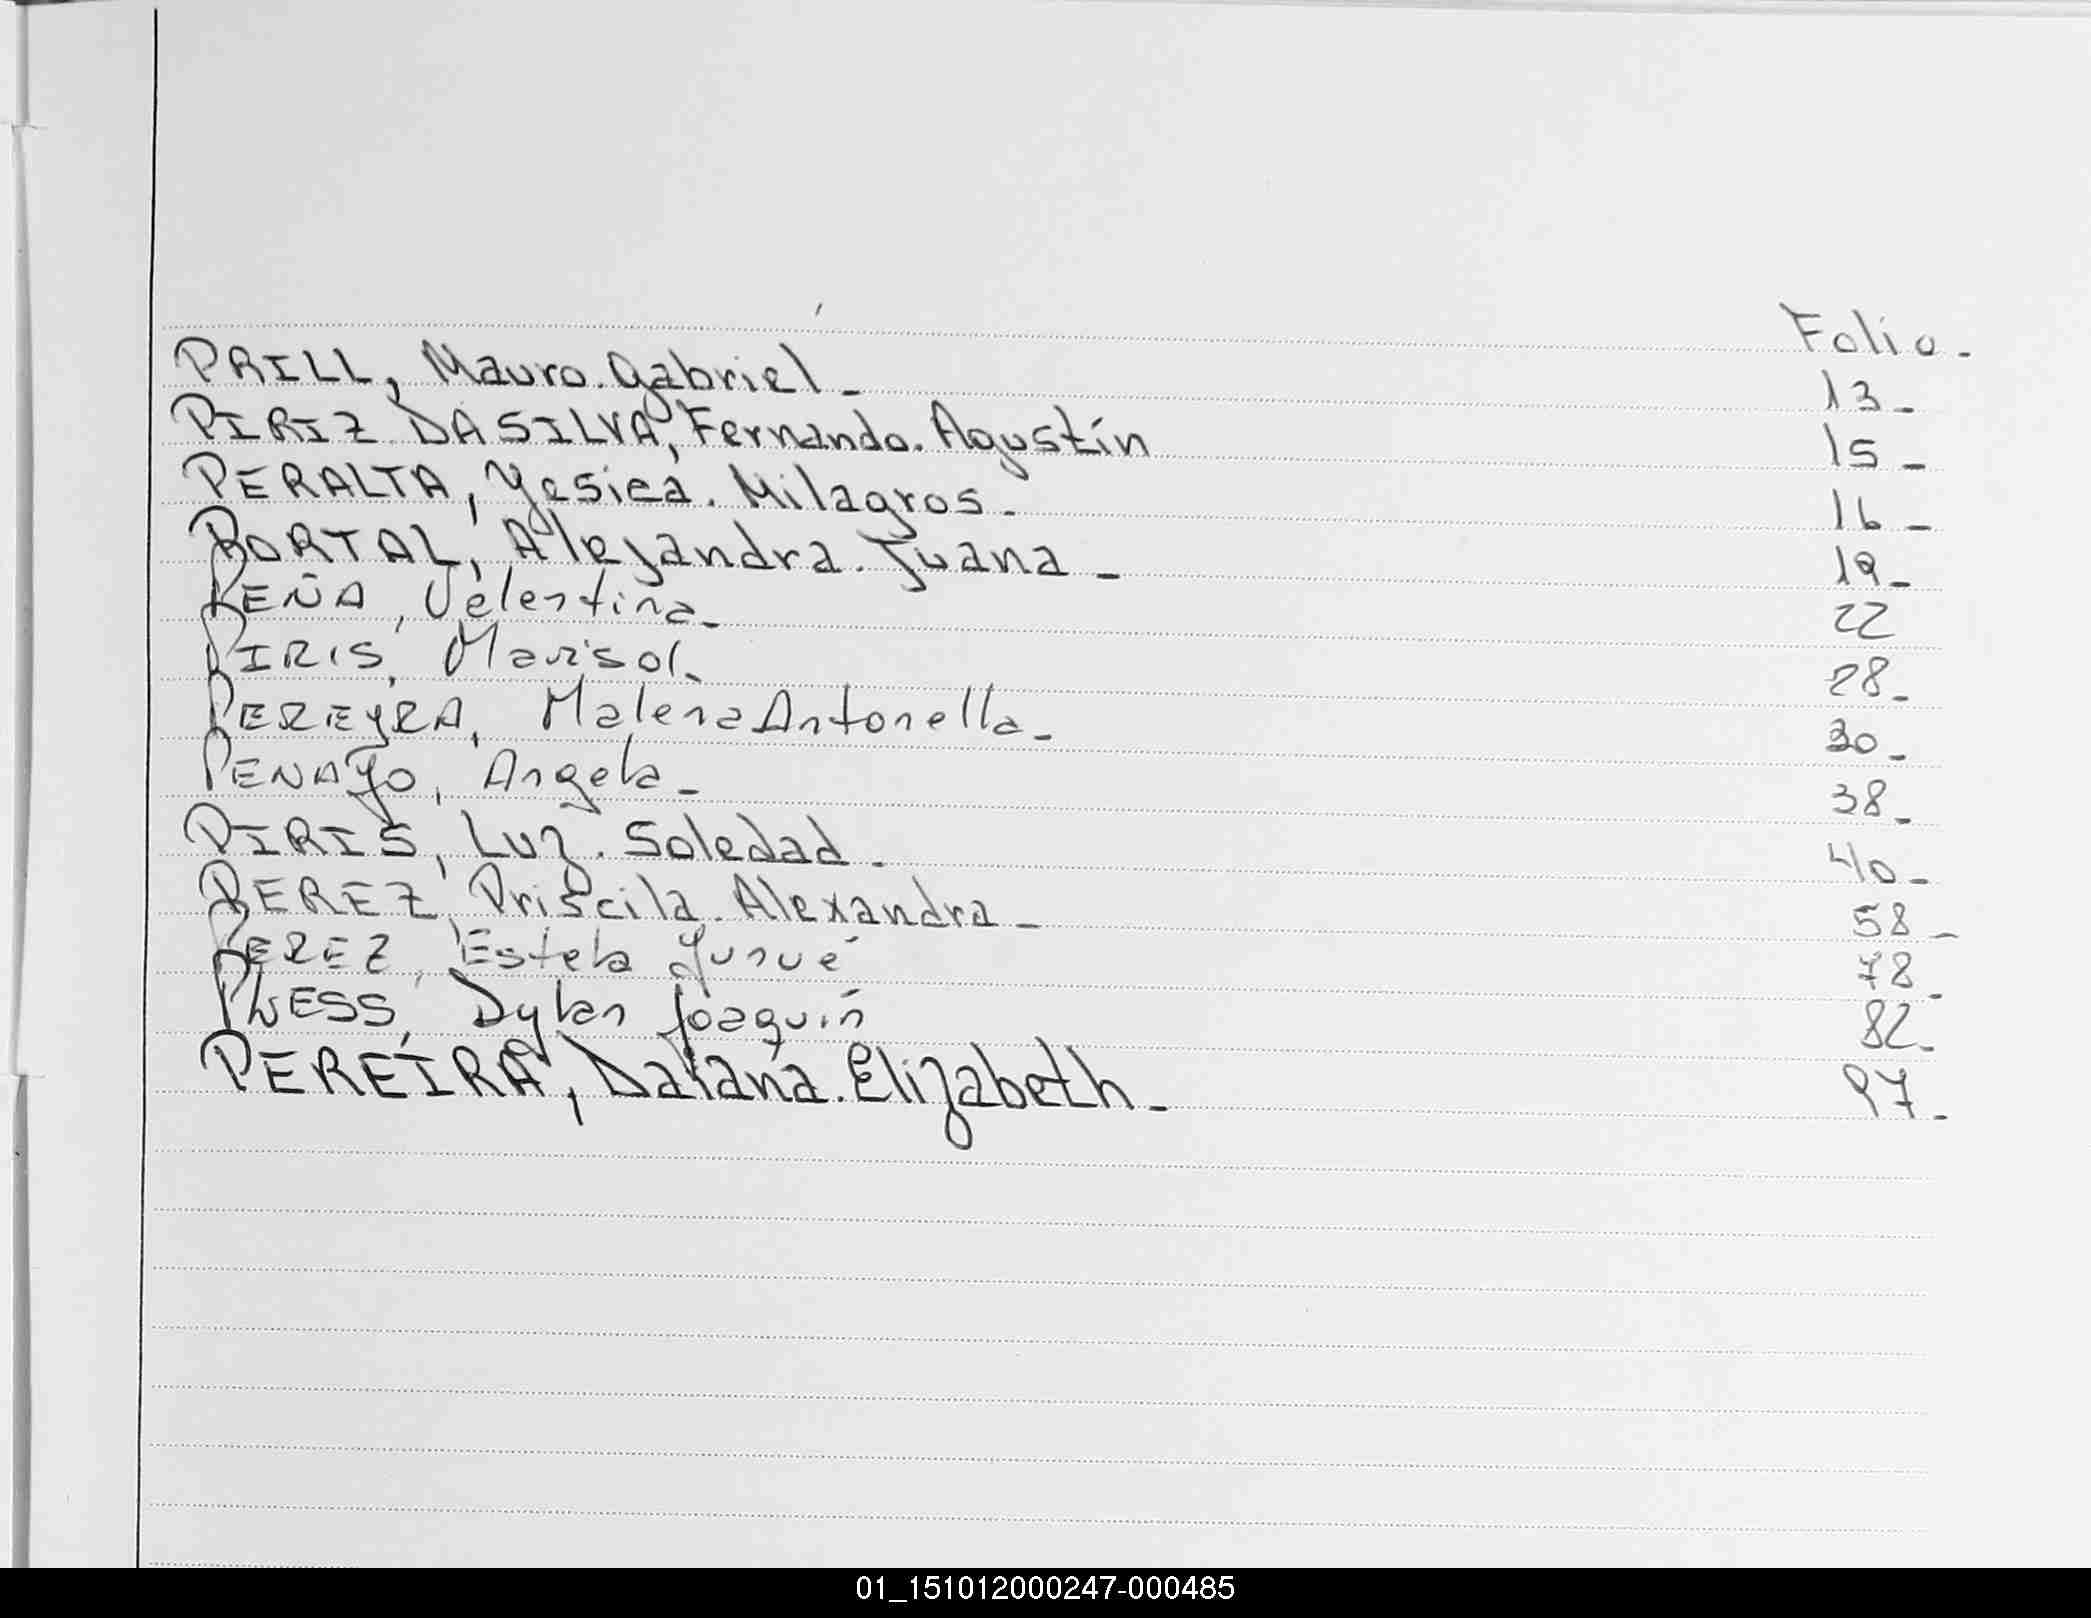 Folio.
PRILL, Mauro. Gabriel - 13 -
PIRIZ DA SILVA, Fernando. Agustín 15 -
PERALTA, Yesica. Milagros - 16 -
PORTAL, Alejandra. Juana - 19 -
PEÑA, Velentina - 22
PIRIS, Marisol - 28 -
PEREYRA, Malena Antonella - 30 -
PENAYO, Angela - 38 -
PIRIS, Luz. Soledad - 40 -
PEREZ, Priscila. Alexandra - 58 -
PEREZ, Estela 78 -
Dylan Joaquín 82 -
PEREIRA, Daiana. Elizabeth - 97 -
01_151012000247-000485